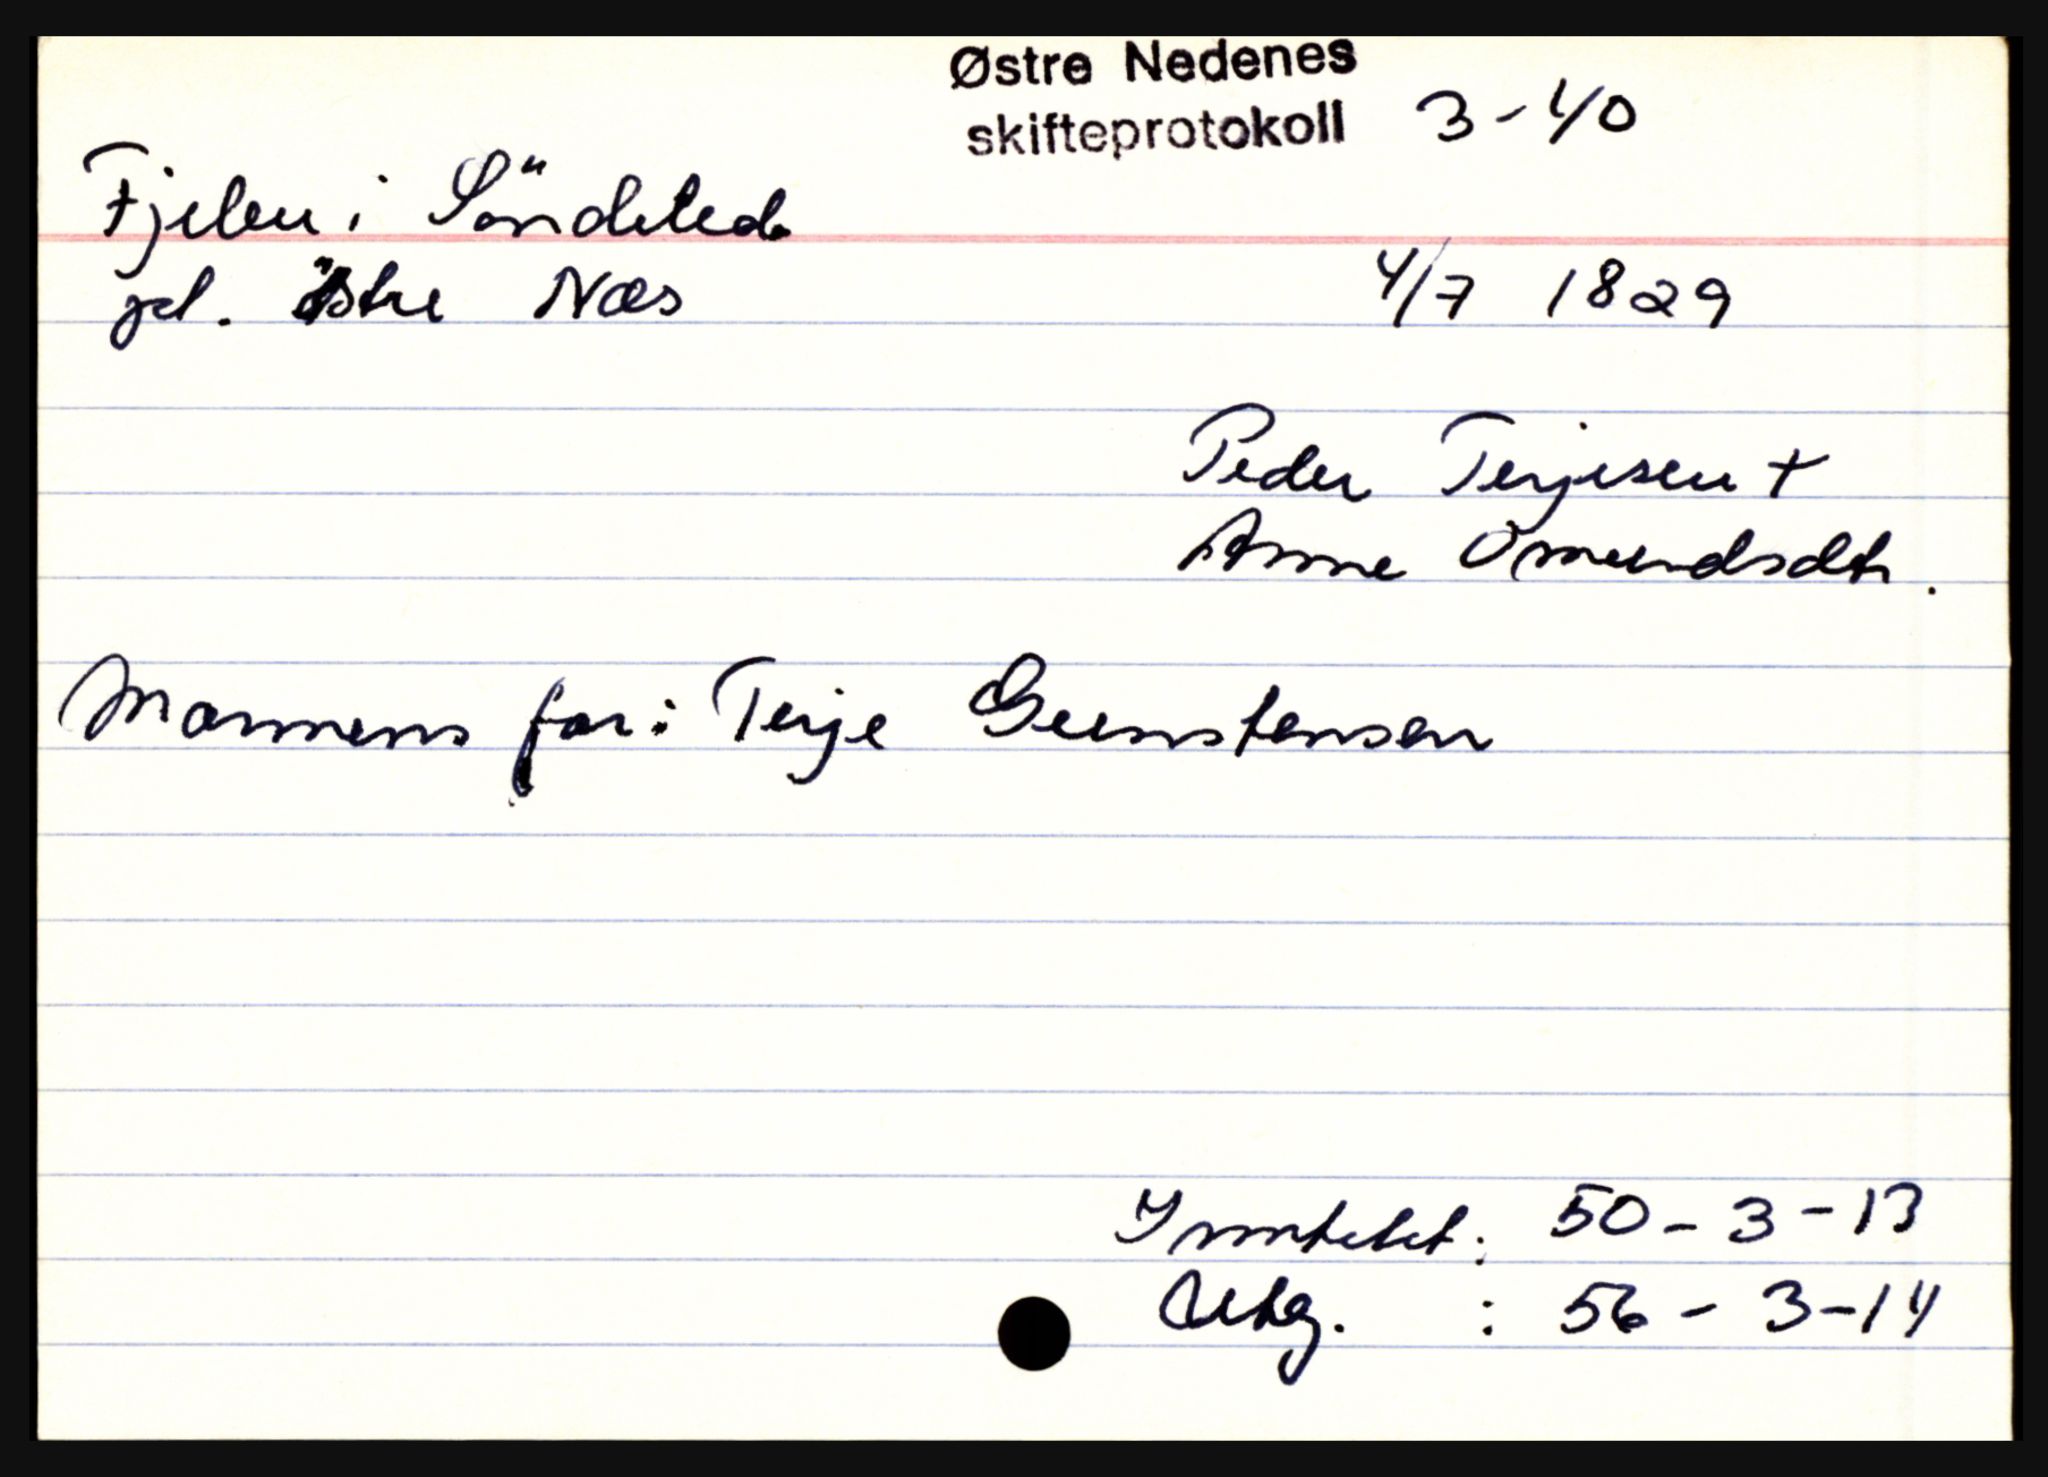 Østre Nedenes
skifteprotokoll 3-40
Fjelen i Söndeled
pl. östre Næs
4/7 1829
Peder Terjesen +
Anne Omundsdtr.
Mannens far: Terje Gunstensen
Inntekt: 50-3-13
Utg. : 56-3-14